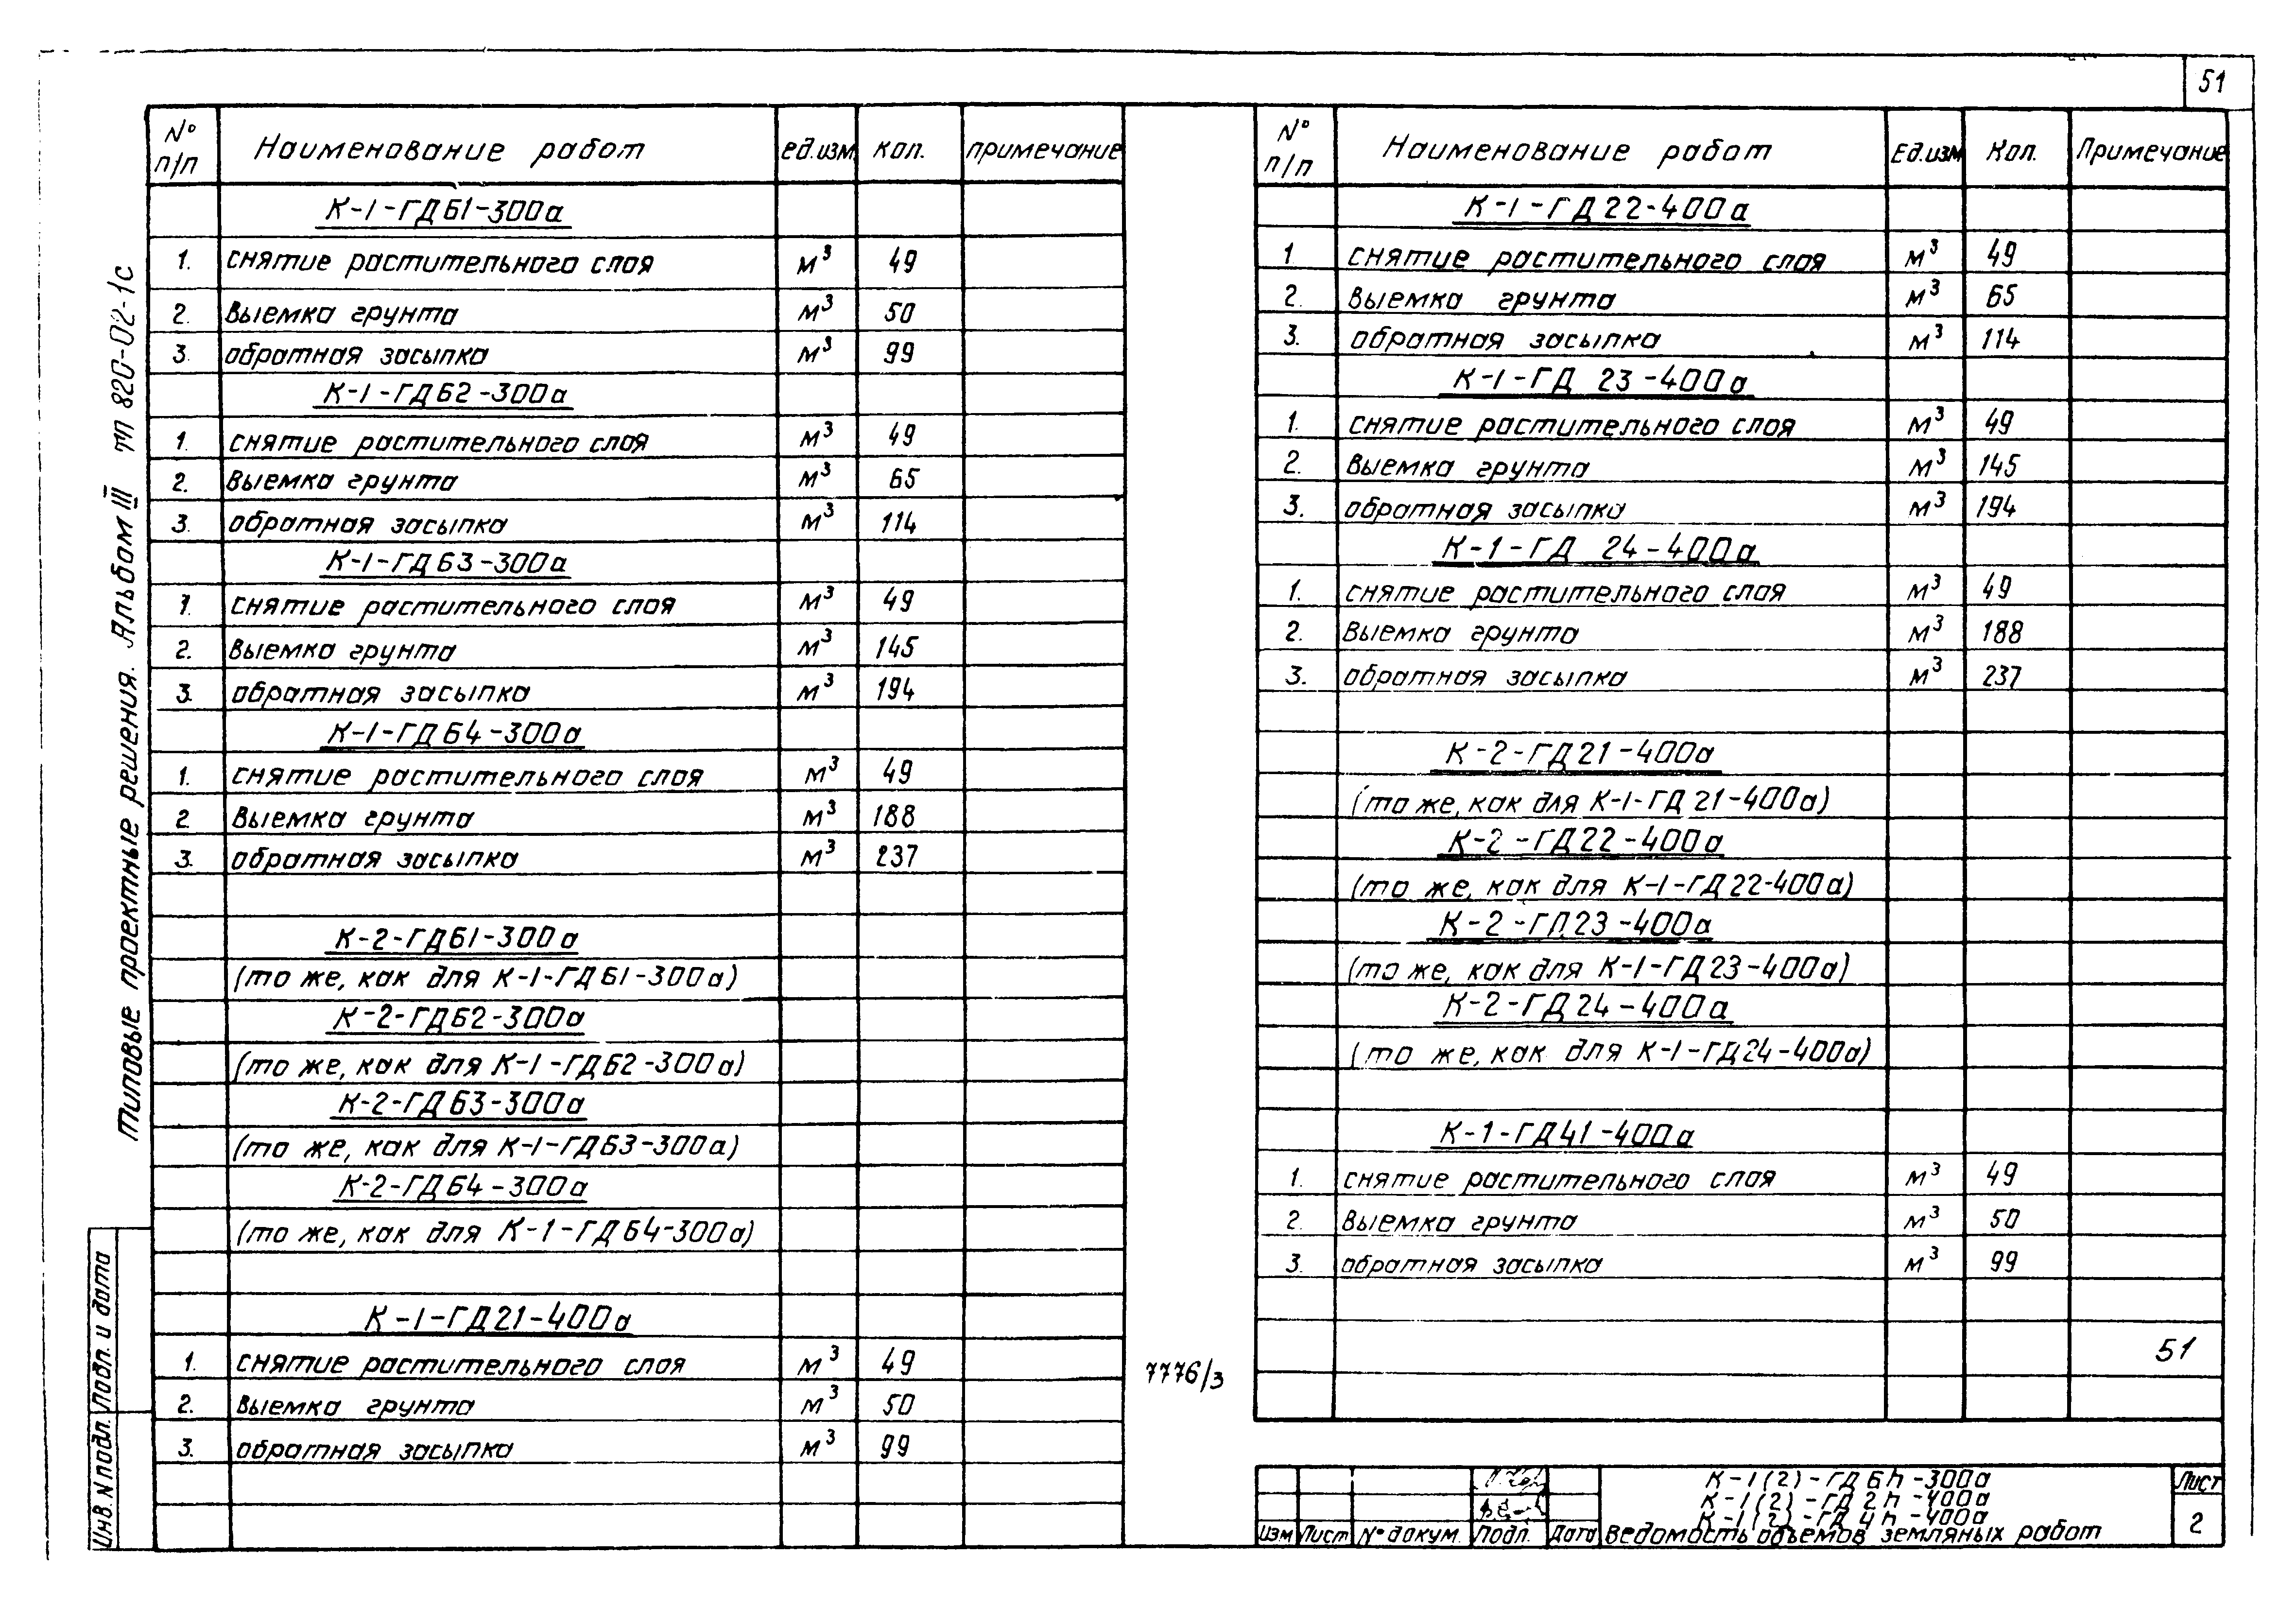 51
№ п/п Наименование работ ед.изм. кол. примечание
К-1-ГД61-300а
1. снятие растительного слоя м³ 49
2. Выемка грунта м³ 50
3. обратная засыпка м³ 99
К-1-ГД62-300а
1. снятие растительного слоя м³ 49
2. Выемка грунта м³ 65
3. обратная засыпка м³ 114
К-1-ГД63-300а
1. снятие растительного слоя м³ 49
2. Выемка грунта м³ 145
3. обратная засыпка м³ 194
К-1-ГД64-300а
1. снятие растительного слоя м³ 49
2. Выемка грунта м³ 188
3. обратная засыпка м³ 237
К-2-ГД61-300а
(то же, как для К-1-ГД61-300а)
К-2-ГД62-300а
(то же, как для К-1-ГД62-300а)
К-2-ГД63-300а
(то же, как для К-1-ГД63-300а)
К-2-ГД64-300а
(то же, как для К-1-ГД64-300а)
К-1-ГД21-400а
1. снятие растительного слоя м³ 49
2. Выемка грунта м³ 50
3. обратная засыпка м³ 99
№ п/п Наименование работ Ед.изм Кол. Примечание
К-1-ГД22-400а
1. снятие растительного слоя м³ 49
2. Выемка грунта м³ 65
3. обратная засыпка м³ 114
К-1-ГД 23-400а
1. снятие растительного слоя м³ 49
2. Выемка грунта м³ 145
3. обратная засыпка м³ 194
К-1-ГД 24-400а
1. снятие растительного слоя м³ 49
2. Выемка грунта м³ 188
3. обратная засыпка м³ 237
К-2-ГД21-400а
(то же, как для К-1-ГД21-400а)
К-2-ГД22-400а
(то же, как для К-1-ГД22-400а)
К-2-ГД23-400а
(то же, как для К-1-ГД23-400а)
К-2-ГД24-400а
(то же, как для К-1-ГД24-400а)
К-1-ГД41-400а
1. снятие растительного слоя м³ 49
2. Выемка грунта м³ 50
3. обратная засыпка м³ 99
51
7776/3
Типовые проектные решения. Альбом III тп 820-02-1с
Инв. N подл. Подп. и дата
К-1(2)-ГД6h-300а
К-1(2)-ГД2h-400а
К-1(2)-ГД4h-400а
Ведомость объемов земляных работ
Изм Лист № докум. Подп. Дата
Лист
2